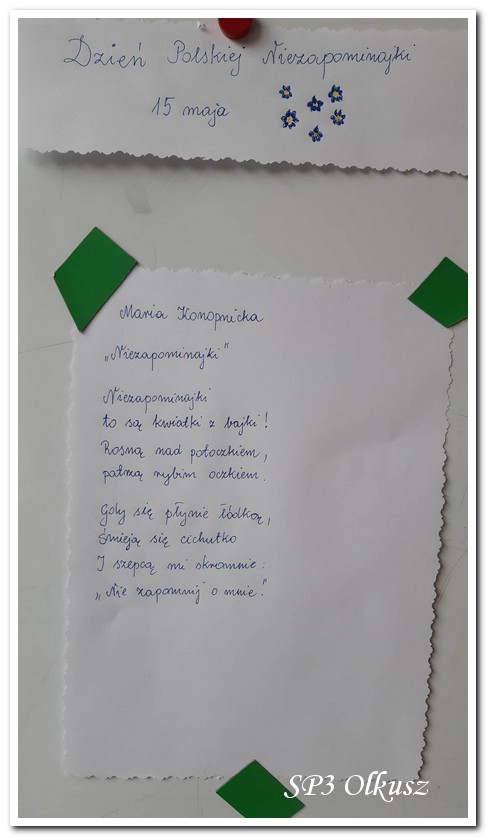 Dzień Polskiej Niezapominajki
15 maja
Maria Konopnicka
„Niezapominajki"
Niezapominajki
to są kwiatki z bajki!
Rosną nad potoczkiem,
patrzą rybim oczkiem.
Gdy się płynie łódką,
śmieją się cichutko
I szepcą mi skromnie:
„Nie zapomnij o mnie."
SP3 Olkusz